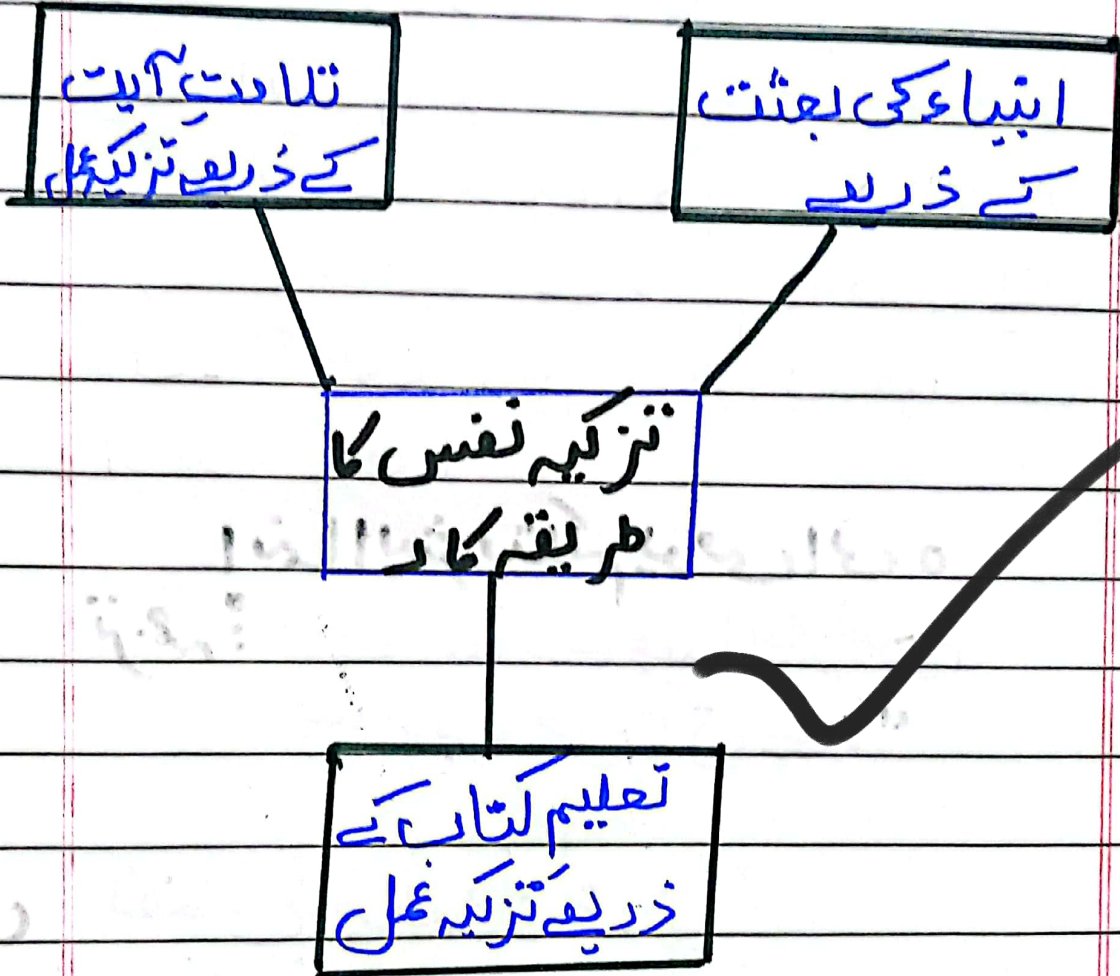 انبیاء کی بعثت
کے ذریعے
تلاوتِ آیت
کے ذریعے تزکیہ عمل
تزکیہ نفس کا
طریقہ کار
تعلیم کتاب کے
ذریعے تزکیہ عمل